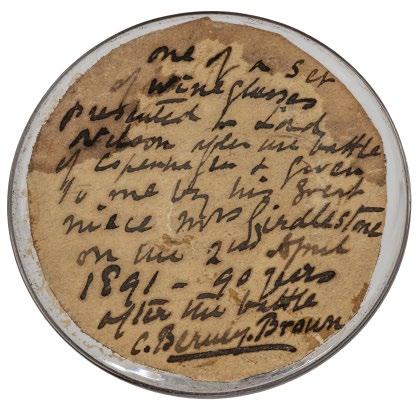 one of a Set
of Wineglasses
presented to Lord
Nelson after the battle
of Copenhagen & given
to me by his great
niece Mrs Girdlestone
on the 2nd April
1891 - 90 years
after the battle
C. Berney. Brown